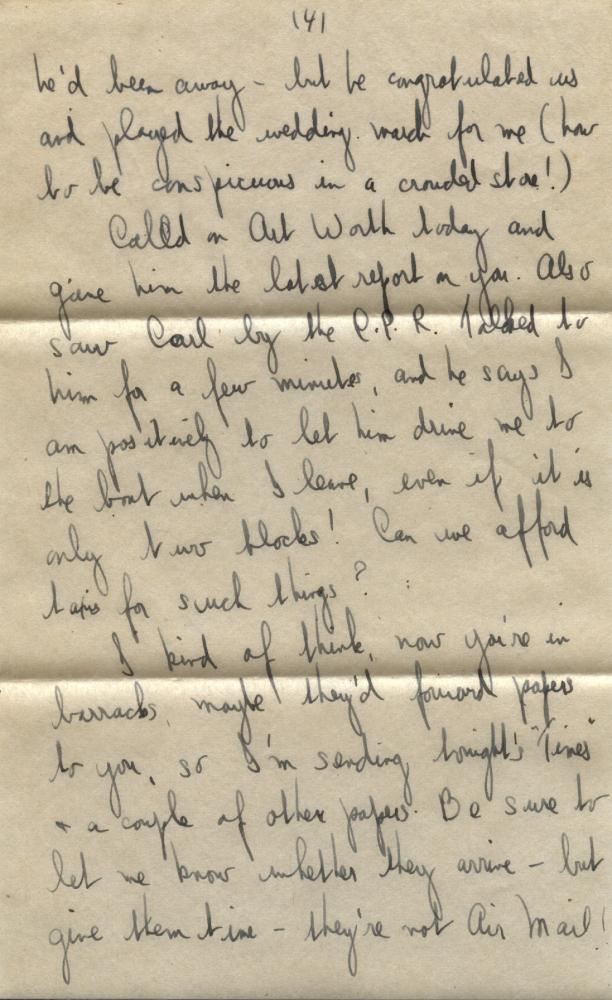 (4)
he'd been away - but he congratulated us
and played the wedding march for me (how
to be conspicuous in a crowded store!)
Called on Art Worth today and
gave him the latest report on you. Also
saw Carl by the C.P.R. Talked to
him for a few minutes, and he says I
am positively to let him drive me to
the boat when I leave, even if it is
only two blocks! Can we afford
taxis for such things?
I kind of think, now you're in
barracks, maybe they'd forward papers
to you, so I'm sending tonight's "Times"
+ a couple of other papers. Be sure to
let me know whether they arrive - but
give them time - they're not Air Mail!